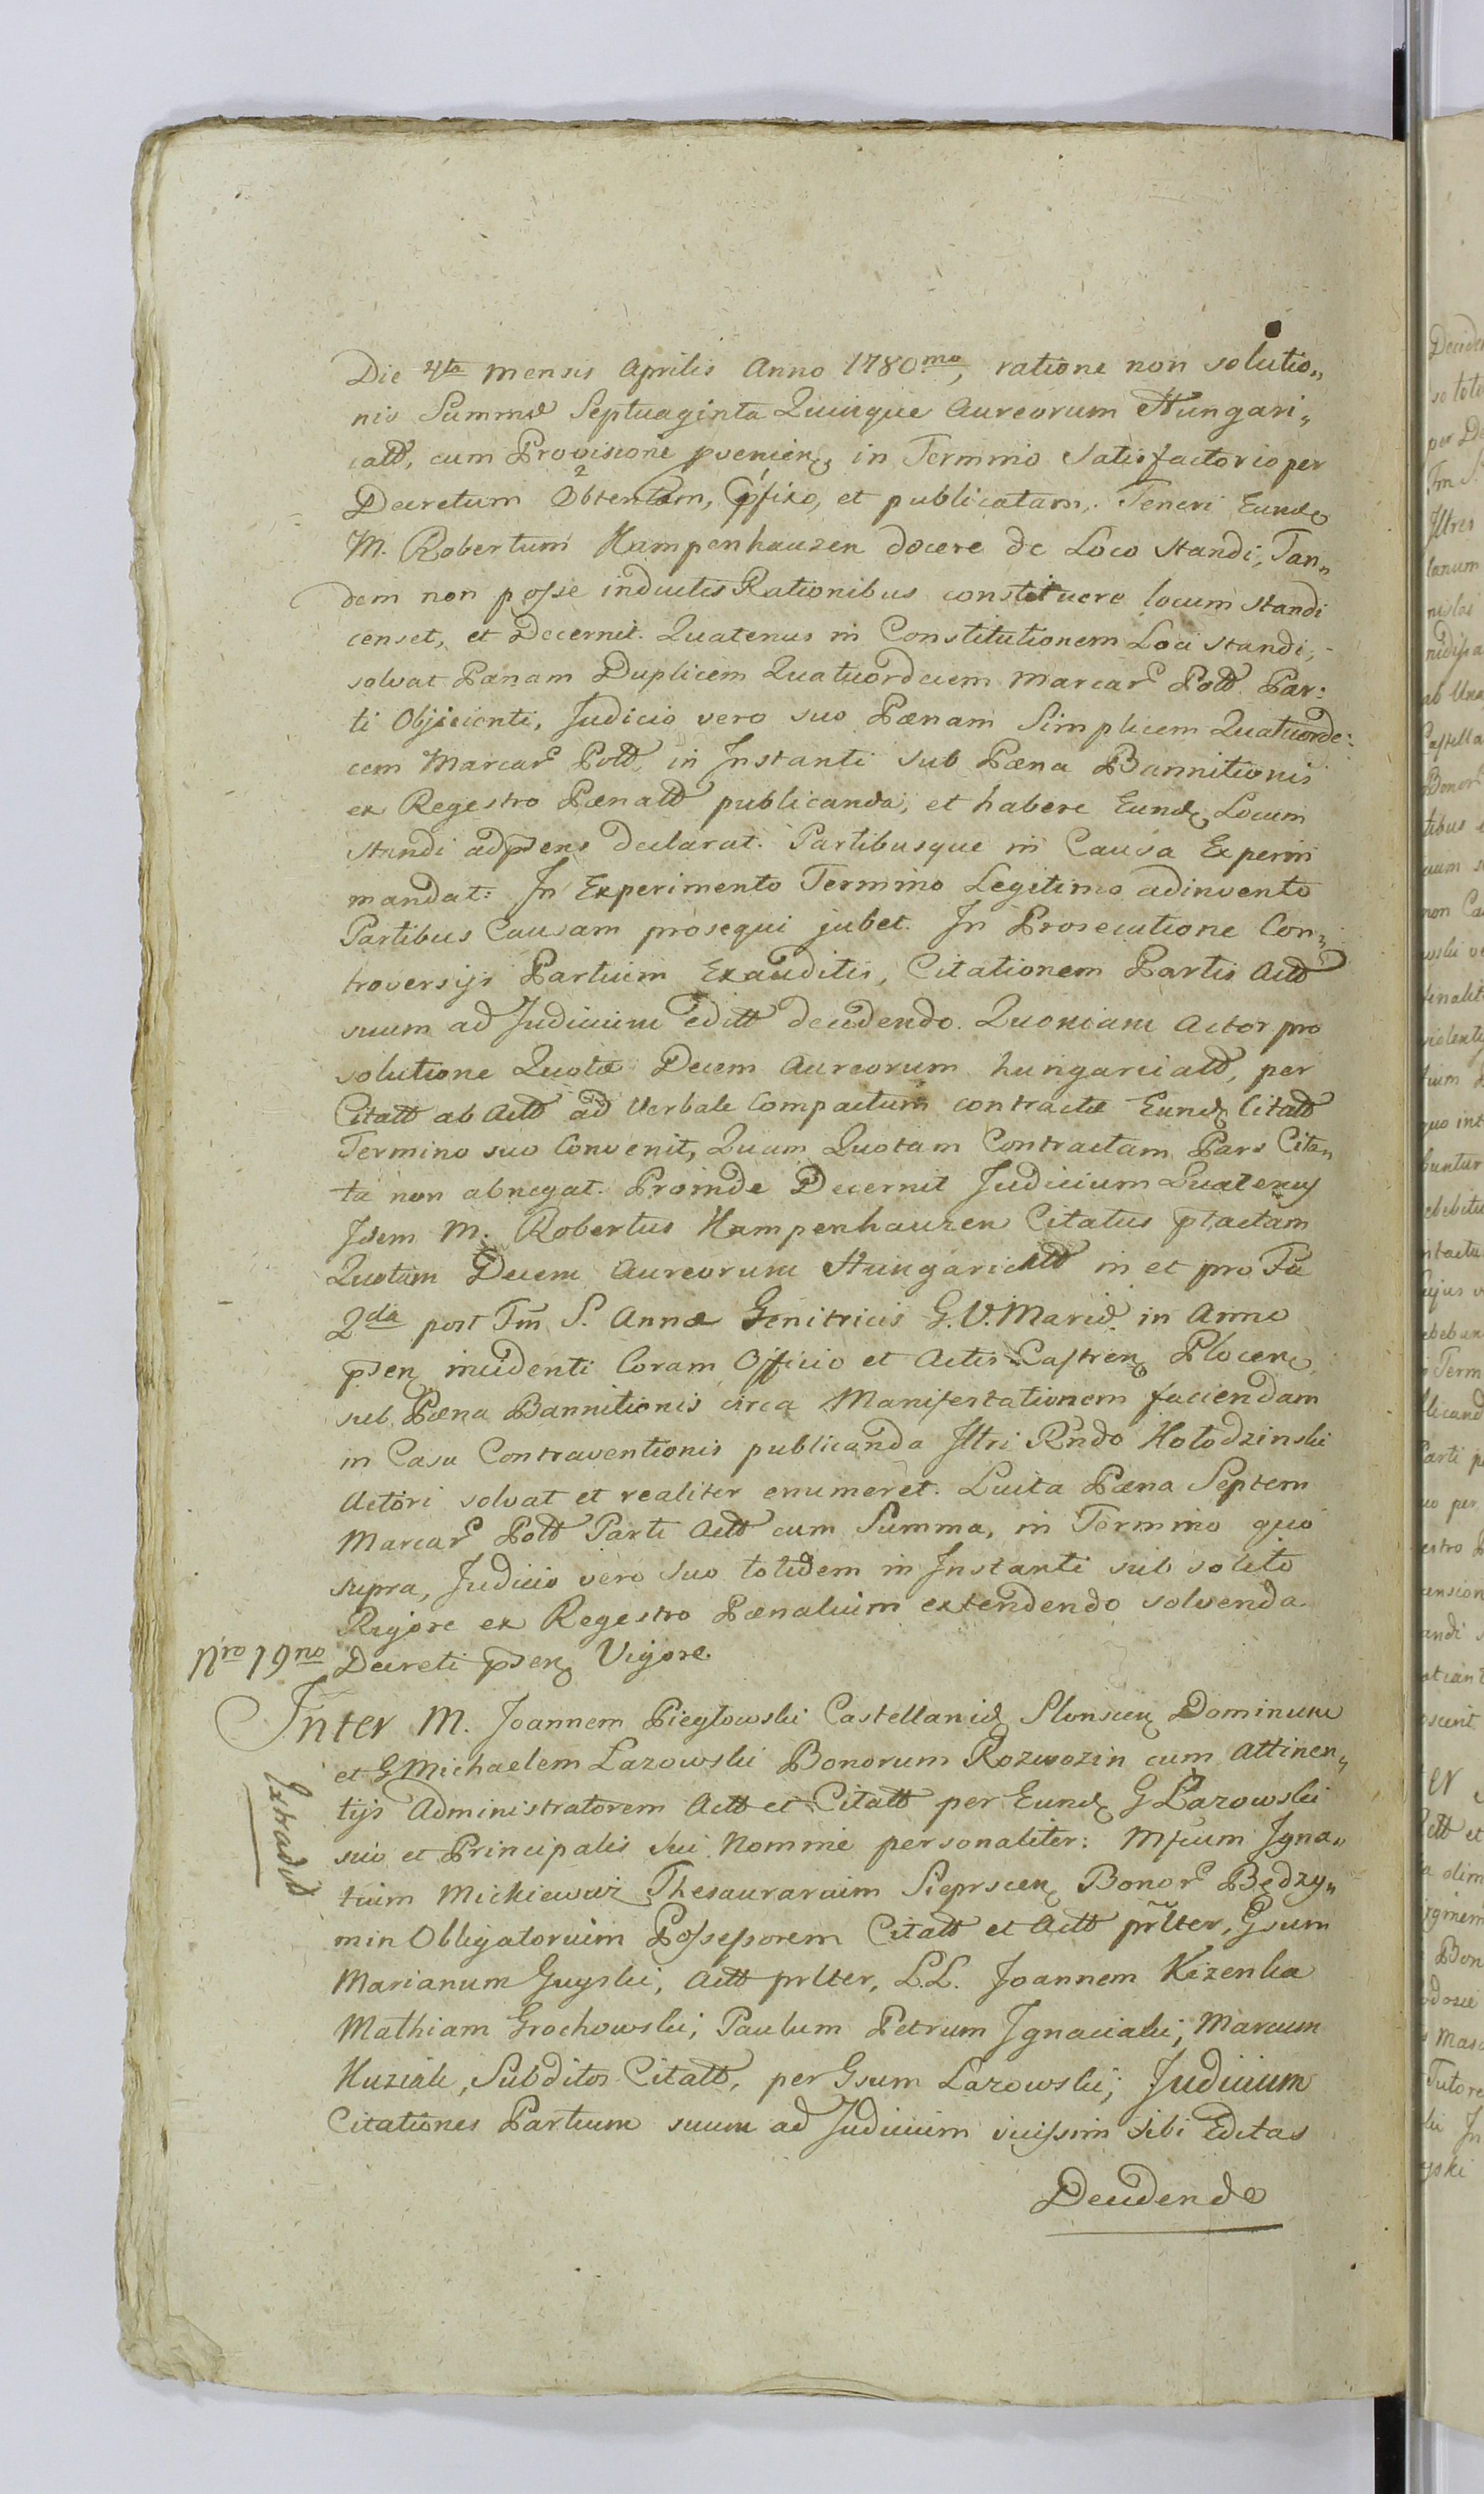 Die 4ta mensis Aprilis Anno 1780mo, ratione non solutio„
nis Summæ Septuaginta Quinque Aureorum Hungari„
cal, cum Provisione pvenien, in Termino Satisfactorio per
Decretum Obtentam, pfixo, et publicatam, Teneri Eund
M. Robertum Kampenhauzen docere de Loco Standi, Tan„
dem non posse inductis Rationibus constituere locum standi
censet, et Decernit. Quatenus in Constitutionem Loci standi,
solvat Pænam Duplicem Quatuordecem marcar Pol Par:
ti Objicienti, Judicio vero suo Pænam Simplicem Quatuorde:
cem Marcar Pol, in Instanti sub Pæna Bannitionis
ex Regestro Pænal publicanda, et habere Eund Locum
standi adpsens declarat. Partibusque in Causa Experiri
mandat: In Experimento Termino Legitimo adinvento
Partibus Causam prosequi jubet. In Prosecutione Con„
troversijs Partium Exauditis, Citationem Partis Act
suum ad Judicium edit decidendo. Quoniam Actor pro
solutione Quotæ Decem Aureorum hungarical, per
Citat ab Act ad Verbale Compactum contractæ Eund Citat
Termino suo Convenit, Quam Quotam Contractam Pars Cita„
ta non abnegat. Proinde Decernit Judicium Quatenus
Idem M. Robertus Kampenhauzen Citatus ptactam
Quotam Decem Aureorum Hungarical in et pro Fa
2da post Fm S. Annæ Genitricis G. V. Mariæ in Anno
psen incidenti Coram Officio et Actis Castren Plocen,
sub Pæna Bannitionis circa Manifestationem faciendam
in Casu Contraventionis publicanda Iltri Rndo Kołodzinski
Actori solvat et realiter enumeret. Luita Pæna Septem
Marcar Pol Parti Act cum Summa, in Termino quo
supra, Judicio vero suo totidem in Instanti sub solito
Rigore ex Regestro Pænalium extendendo solvenda.
Nro 19no Decreti psen Vigore.
Inter M. Joannem Pieglowski Castellanid Slonscen Dominum
et G Michaelem Lazowski Bonorum Rozwozin cum Attinen„
tijs Administratorem Act et Citat per Eund G Lazowski
Extradit
suo et Principalis sui Nomine personaliter: Mfcum Igna„
tium Mickiewicz Thesaurarium Sieprscen Bonor Będzy„
min Obligatorium Possessorem Citat et Act prlter, Gsum
Marianum Guyski, Act prlter, L.L. Joannem Kizenka
Mathiam Grochowski, Paulum Petrum Ignaciaki, Marcum
Kuziak, Subditos Citat, per Gsum Lazowski; Judicium
Citationes Partium suum ad Judicium vicissim sibi Editas
Decidendo